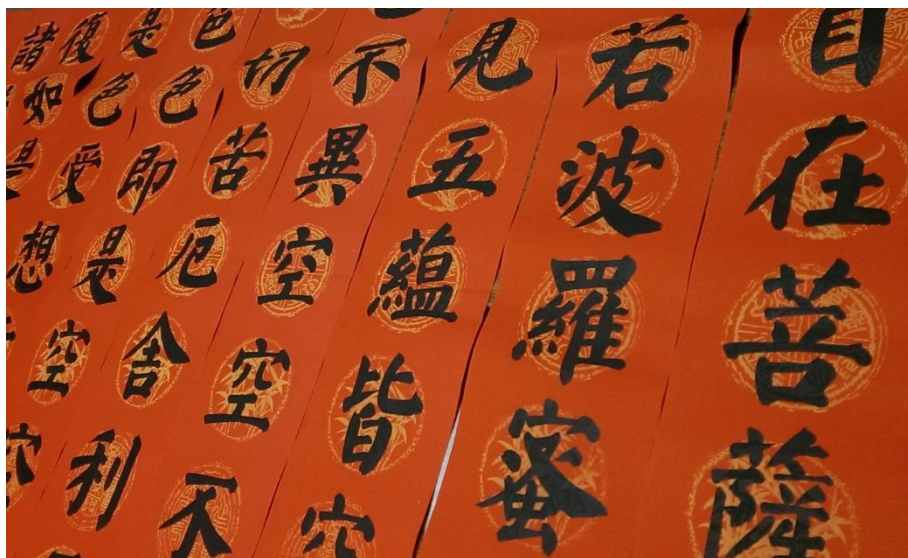 自在菩薩
若波羅蜜
見五蘊皆空
不異空空不
切苦厄舍利
色色即是空空
是色受想
復如是
諸